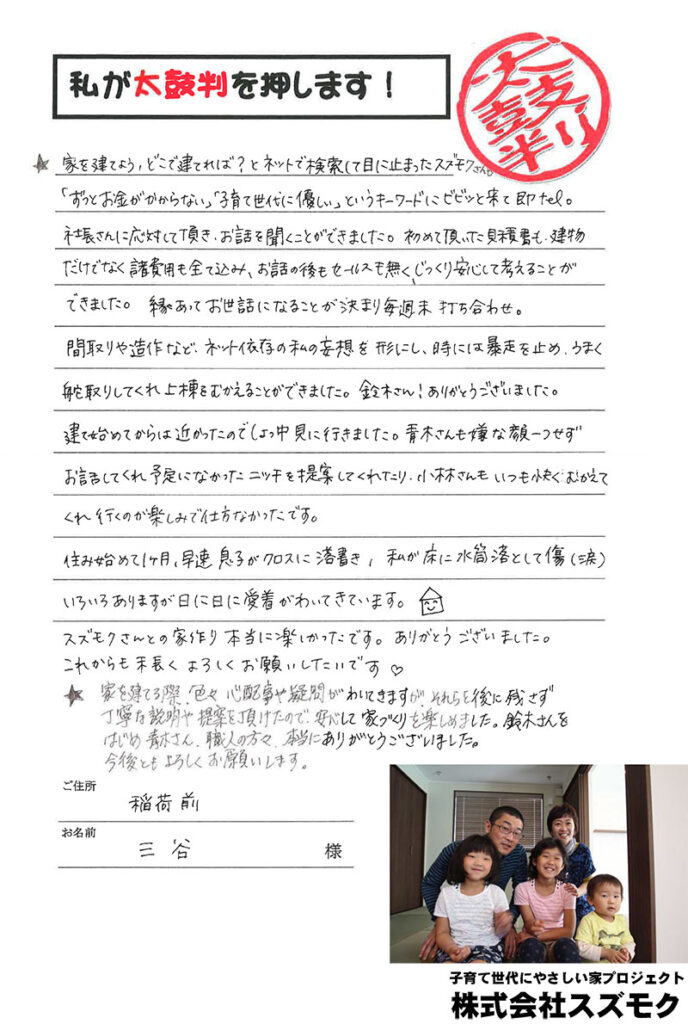 私が太鼓判を押します！
太鼓判
★ 家を建てよう、どこで建てれば？とネットで検索して目に止まったスズモクさん。
「ずっとお金がかからない」「子育て世代に優しい」というキーワードにビビッと来て即tel。
社長さんに応対して頂き、お話を聞くことができました。初めて頂いた見積書も、建物
だけでなく諸費用も全て込み、お話の後もセールスも無く、じっくり安心して考えることが
できました。 縁あってお世話になることが決まり毎週末 打ち合わせ。
間取りや造作など、ネット依存の私の妄想を形にし、時には暴走を止め、うまく
舵取りしてくれ上棟をむかえることができました。鈴木さん！ありがとうございました。
建て始めてからは近かったのでしょっ中見に行きました。青木さんも嫌な顔一つせず
お話してくれ予定になかったニッチを提案してくれたり、小林さんもいつも快くむかえて
くれ行くのが楽しみで仕方なかったです。
住み始めて1ヶ月、早速息子がクロスに落書き、私が床に水筒落として傷（涙）
いろいろありますが日に日に愛着がわいてきています。
スズモクさんとの家作り本当に楽しかったです。ありがとうございました。
これからも末長くよろしくお願いしたいです♡
★ 家を建てる際、色々心配事や疑問がわいてきますが、それらを後に残さず
丁寧な説明や提案を頂けたので、安心して家づくりを楽しめました。鈴木さんを
はじめ青木さん、職人の方々、本当にありがとうございました。
今後ともよろしくお願いします。
ご住所
稲荷前
お名前
三谷 様
子育て世代にやさしい家プロジェクト
株式会社スズモク